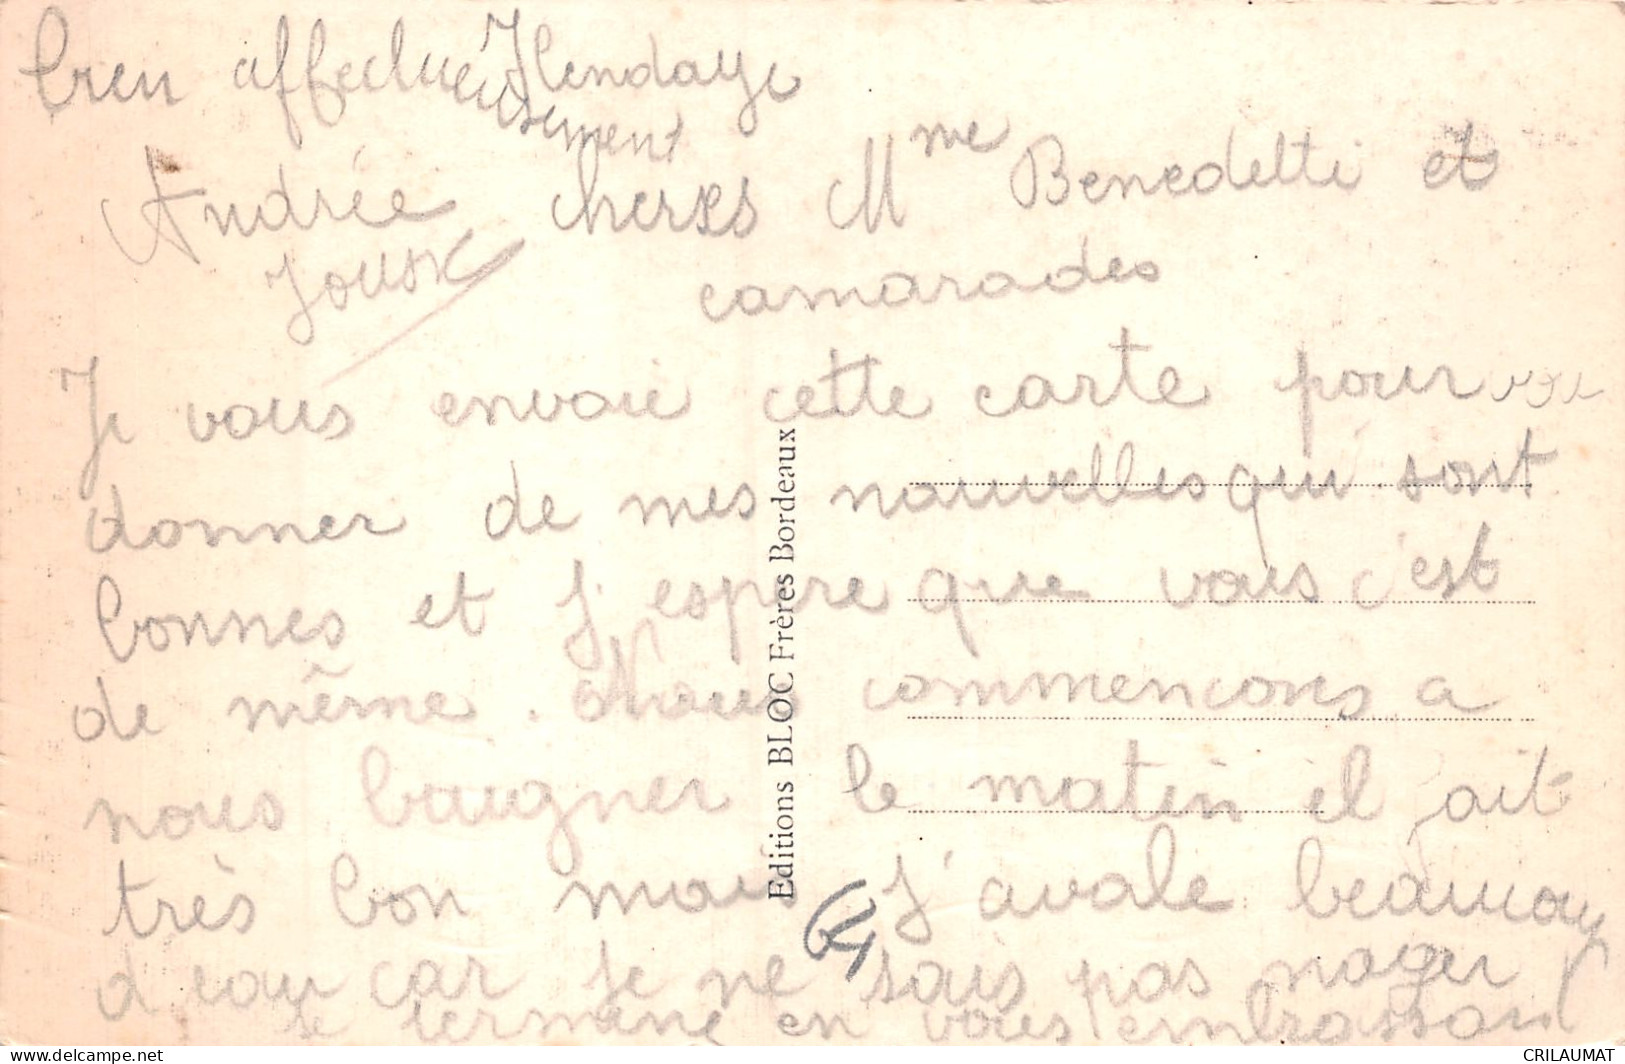 Hendaye
chères Mme Benedetti et
camarades
Je vous envoie cette carte pour vou
donner de mes nouvelles qui sont
bonnes et j'espère que vous c'est
de même. Nous commencons a
nous baigner le matin il fait
très bon mais j'avale beaucoup
d'eau car je ne sais pas nager
Je termine en vous embrassant
bien affectueusement
Andrée
Editions BLOC Frères Bordeaux
64
CRILAUMAT